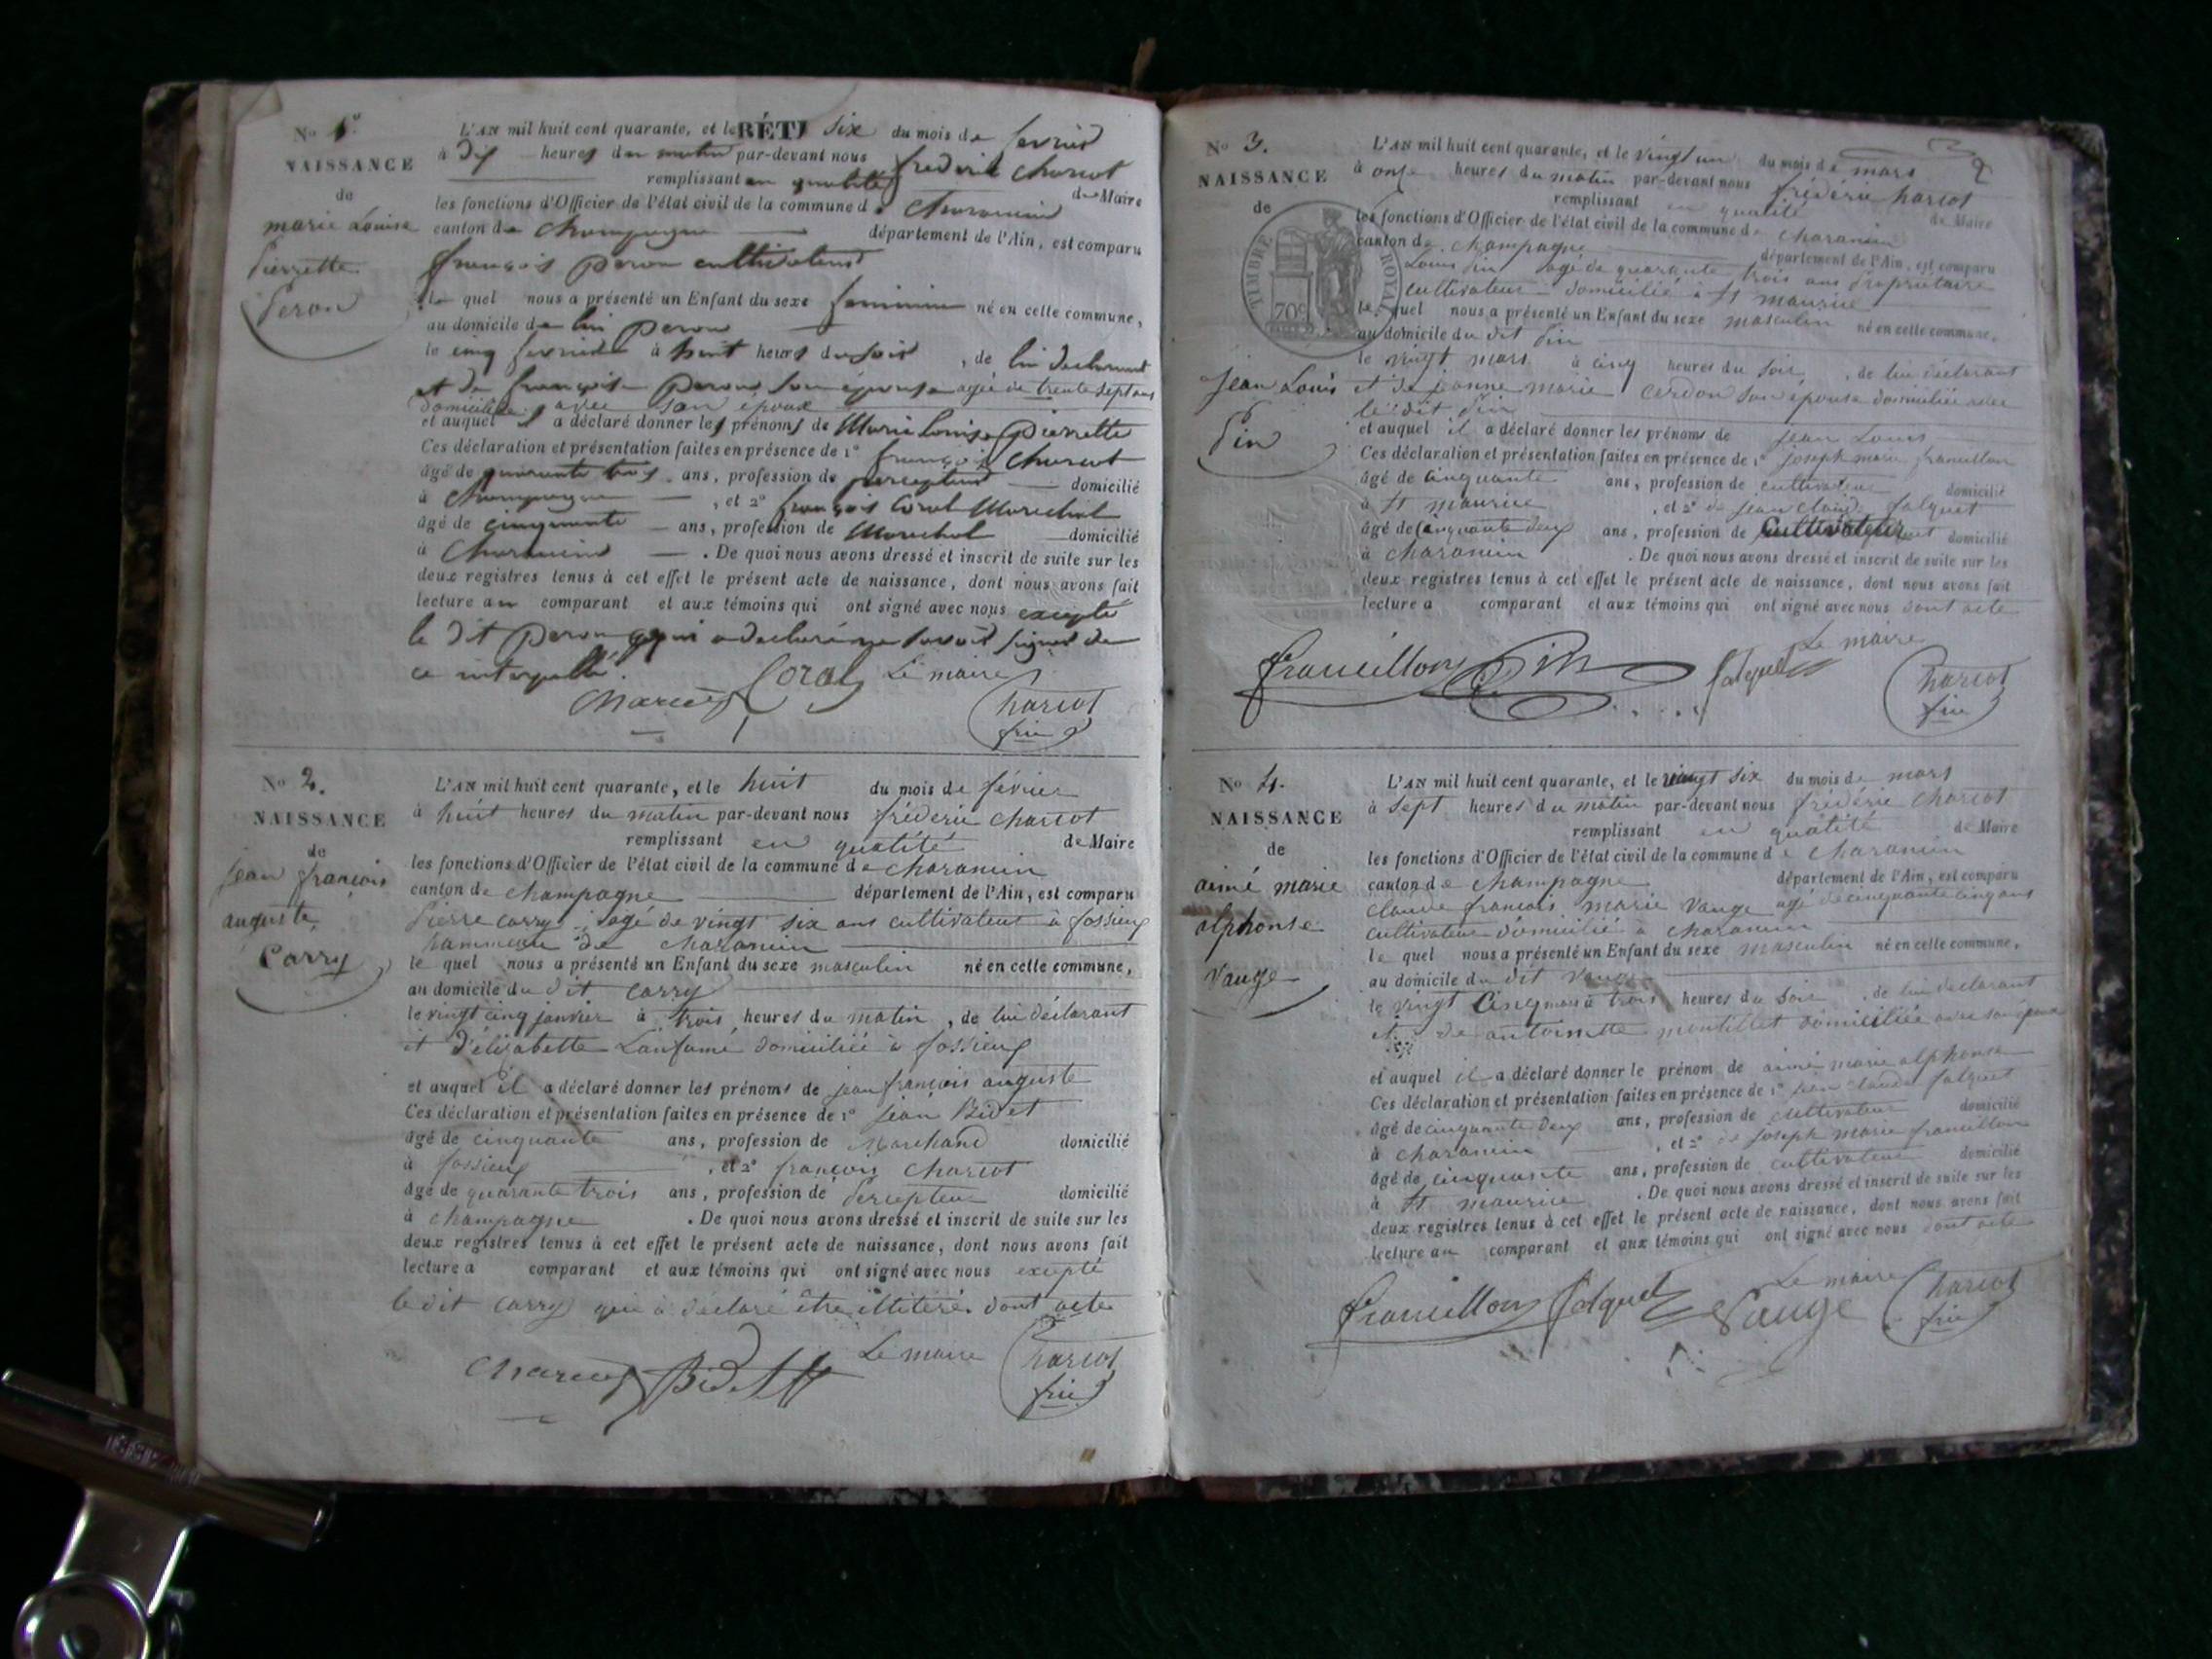 No 1er
NAISSANCE
de
marie Louise
Pierrette
Peron
L'AN mil huit cent quarante, et le RÉTI six du mois de fevrier
à Dix heures du matin par-devant nous frederic Charcot
remplissant en qualité de Maire
les fonctions d'Officier de l'état civil de la commune de Charancin
canton de Champagne département de l'Ain, est comparu
françois peron cultivateur
le quel nous a présenté un Enfant du sexe feminin né en cette commune,
au domicile de lui peron
le cinq fevrier à huit heures du soir, de lui declarant
et de françoise peron son épouse agée de trente sept ans
domiciliée avec son époux
et auquel il a déclaré donner les prénoms de Marie Louise pierrette
Ces déclaration et présentation faites en présence de 1° françois Charcot
âgé de quarante trois ans, profession de percepteur domicilié
à Champagne, et 2° françois Coral Marechal
âgé de cinquante ans, profession de Marechal domicilié
à Charancin. De quoi nous avons dressé et inscrit de suite sur les
deux registres tenus à cet effet le présent acte de naissance, dont nous avons fait
lecture au comparant et aux témoins qui ont signé avec nous excepté
le dit peron qui a declaré ne savoir signer de
ce interpellé
Charcot Coral Le maire Charcot
fric
No 2.
NAISSANCE
de
jean françois
auguste
Carry
L'AN mil huit cent quarante, et le huit du mois de février
à huit heures du matin par-devant nous frédéric Charcot
remplissant en qualité de Maire
les fonctions d'Officier de l'état civil de la commune de Charancin
canton de Champagne département de l'Ain, est comparu
Pierre Carry agé de vingt six ans cultivateur à fossieux
hammeau de charancin
le quel nous a présenté un Enfant du sexe masculin né en cette commune,
au domicile du dit Carry
le vingt cinq janvier à trois heures du matin, de lui déclarant
et d'élisabette Lanfumé domiciliée à fossieux
et auquel il a déclaré donner les prénoms de jean françois auguste
Ces déclaration et présentation faites en présence de 1° jean Bidet
âgé de cinquante ans, profession de Marchand domicilié
à fossieux, et 2° françois Charcot
âgé de quarante trois ans, profession de Percepteur domicilié
à champagne. De quoi nous avons dressé et inscrit de suite sur les
deux registres tenus à cet effet le présent acte de naissance, dont nous avons fait
lecture a comparant et aux témoins qui ont signé avec nous excepté
le dit Carry qui a déclaré être illitéré dont acte
Charcot Bidet Le maire Charcot
fric
No 3.
NAISSANCE
de
TIMBRE ROYAL
70c
jean Louis
Pin
L'AN mil huit cent quarante, et le vingt un du mois de mars
à onze heures du matin par-devant nous frédéric harcot
remplissant en qualité de Maire
les fonctions d'Officier de l'état civil de la commune de Charancin
canton de Champagne département de l'Ain, est comparu
Louis Pin agé de quarante trois ans Propriétaire
cultivateur domicilié à st maurice
le quel nous a présenté un Enfant du sexe masculin né en cette commune,
au domicile du dit Pin
le vingt mars à cinq heures du soir, de lui declarant
et de jeanne marie Cerdon son épouse domiciliée avec
le dit Pin
et auquel il a déclaré donner les prénoms de jean Louis
Ces déclaration et présentation faites en présence de 1° joseph marie francillon
âgé de cinquante ans, profession de cultivateur domicilié
à st maurice, et 2° de jean claude falquet
âgé de Cinquante deux ans, profession de Cultivateur domicilié
à charancin. De quoi nous avons dressé et inscrit de suite sur les
deux registres tenus à cet effet le présent acte de naissance, dont nous avons fait
lecture a comparant et aux témoins qui ont signé avec nous dont acte
francillon Pin falquet Le maire Charcot
fric
No 4.
NAISSANCE
de
aimé marie
alphonse
Vauge
L'AN mil huit cent quarante, et le vingt six du mois de mars
à sept heures du matin par-devant nous frédéric Charcot
remplissant en qualité de Maire
les fonctions d'Officier de l'état civil de la commune de Charancin
canton de Champagne département de l'Ain, est comparu
claude françois marie Vauge agé de cinquante cinq ans
cultivateur domicilié à charancin
le quel nous a présenté un Enfant du sexe masculin né en cette commune,
au domicile du dit Vauge
le vingt Cinq mars à trois heures du soir, de lui declarant
et de antoinette montillet domiciliée avec son époux
et auquel il a déclaré donner le prénom de aimé marie alphonse
Ces déclaration et présentation faites en présence de 1° jean claude falquet
âgé de cinquante deux ans, profession de cultivateur domicilié
à charancin, et 2° de joseph marie francillon
âgé de cinquante ans, profession de cultivateur domicilié
à st maurice. De quoi nous avons dressé et inscrit de suite sur les
deux registres tenus à cet effet le présent acte de naissance, dont nous avons fait
lecture au comparant et aux témoins qui ont signé avec nous dont acte
francillon falquet Vauge Le maire Charcot
fric